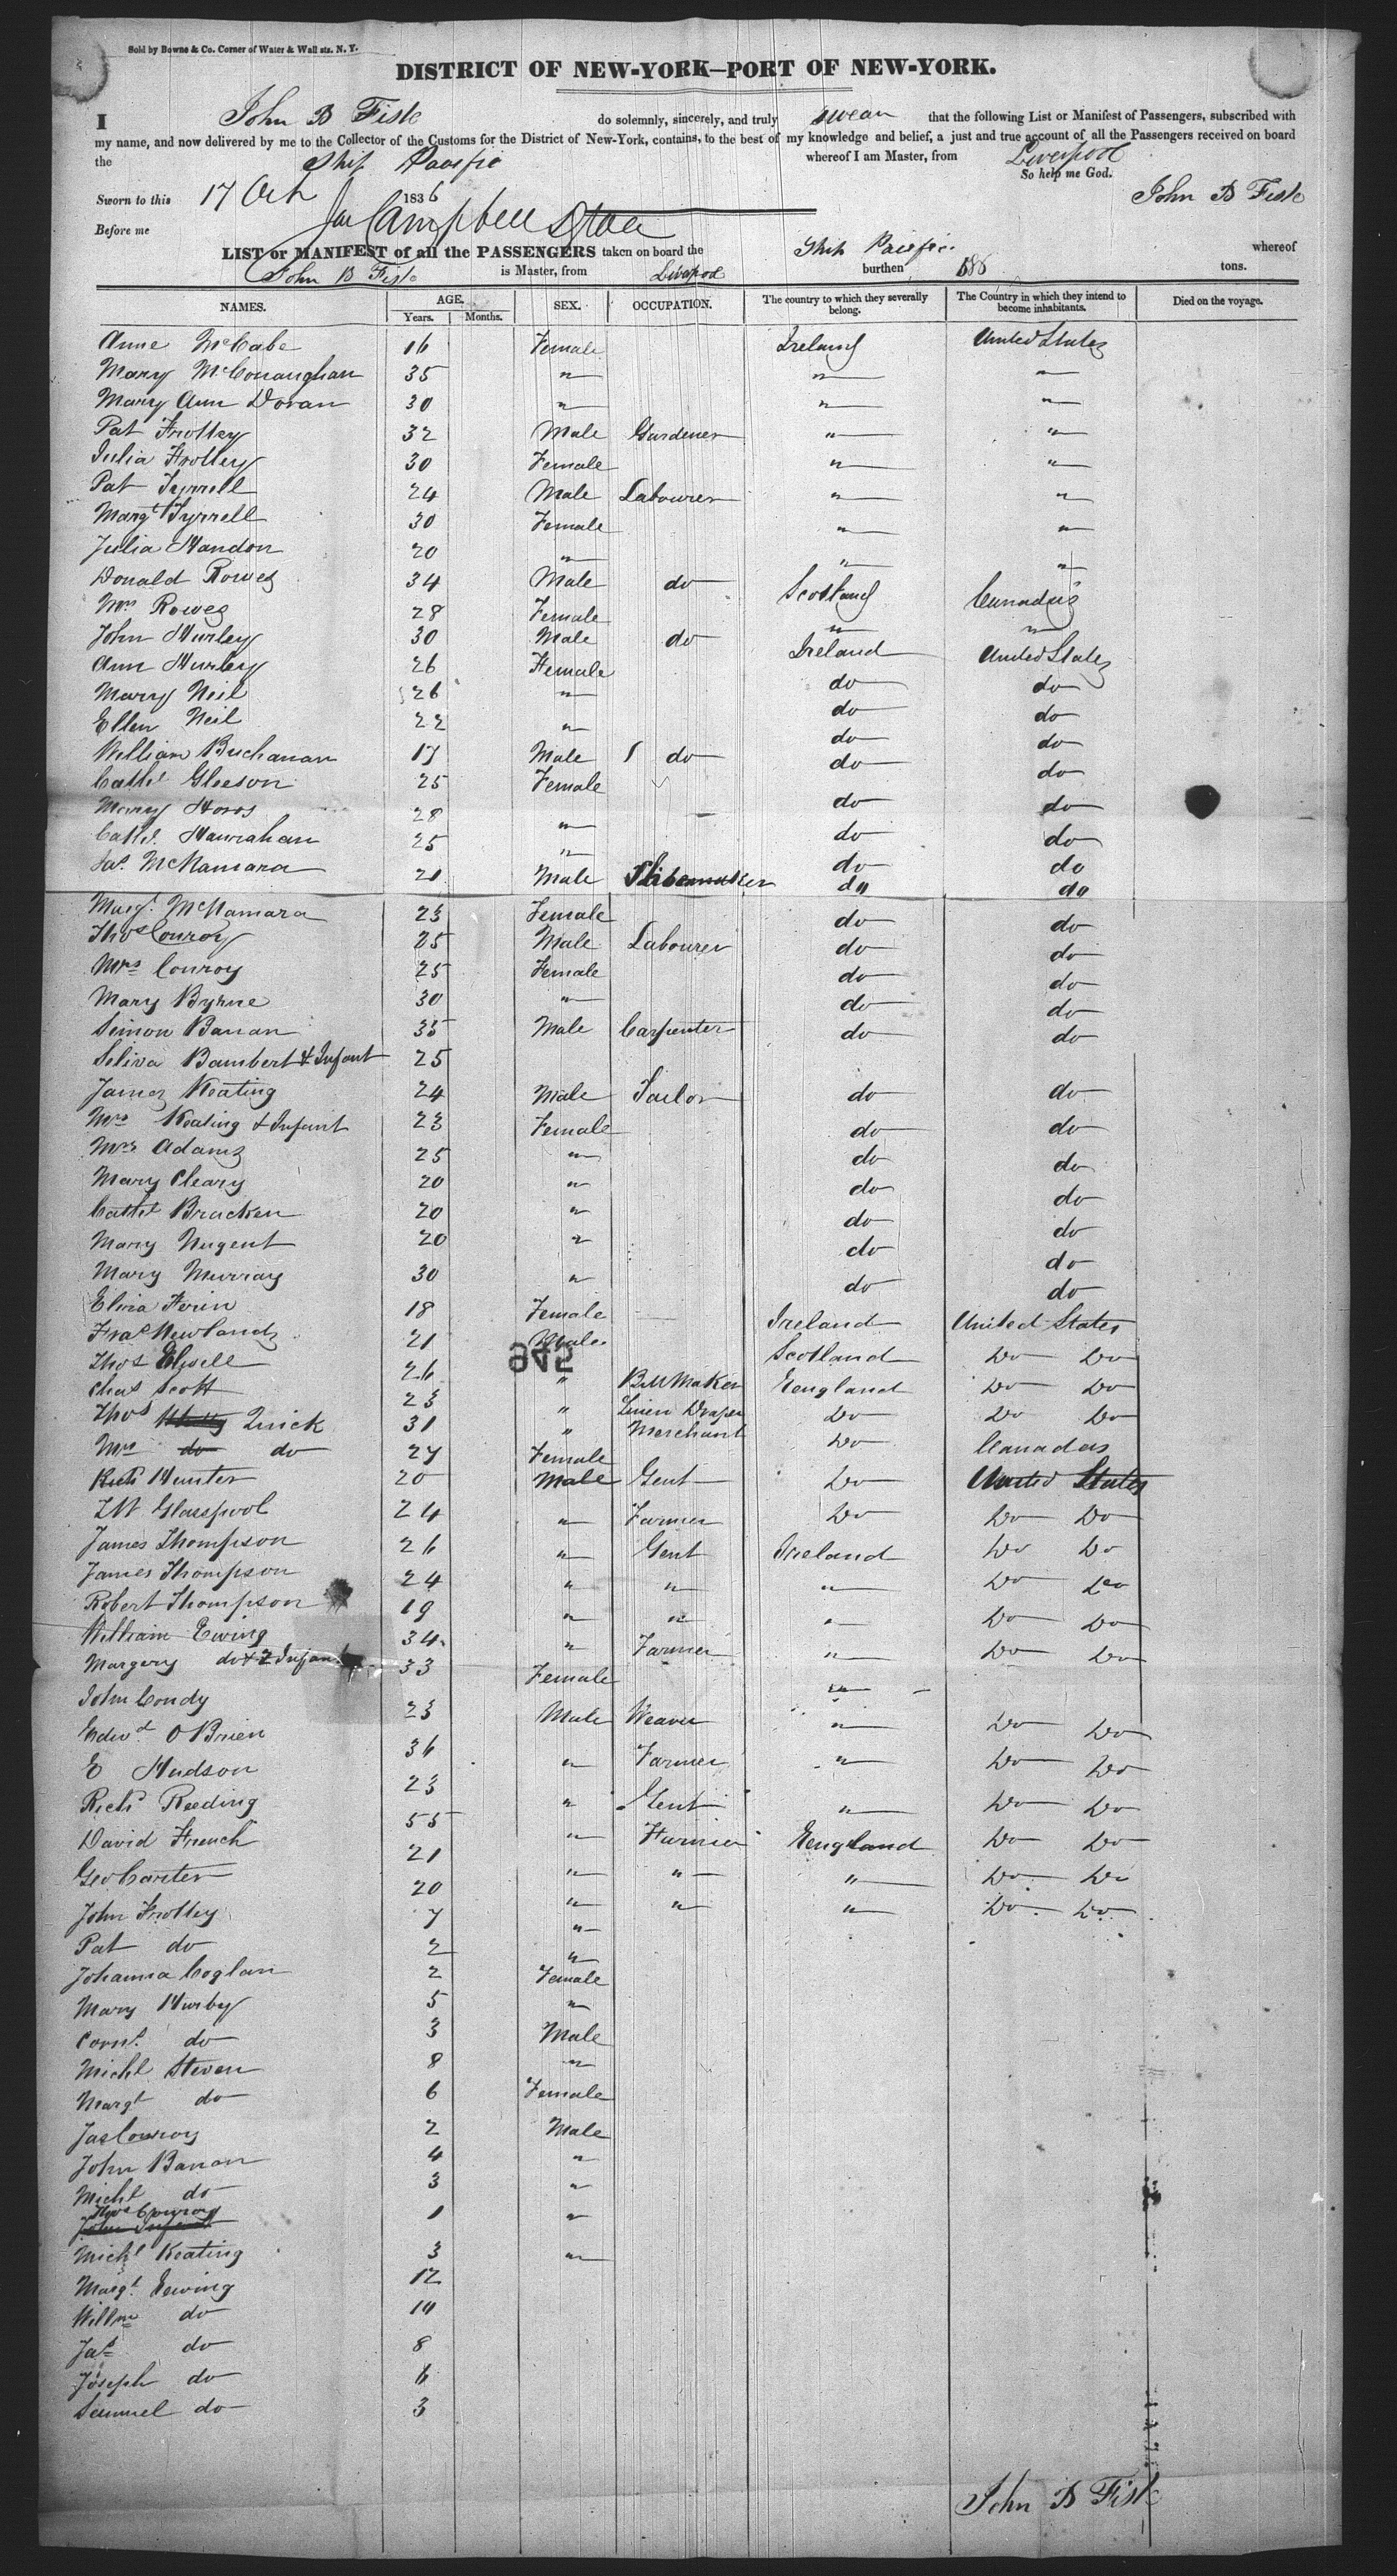 Sold by Bowne & Co. Corner of Water & Wall sts. N. Y.
DISTRICT OF NEW-YORK—PORT OF NEW-YORK.
I John B Fisk do solemnly, sincerely, and truly swear that the following List or Manifest of Passengers, subscribed with
my name, and now delivered by me to the Collector of the Customs for the District of New-York, contains, to the best of my knowledge and belief, a just and true account of all the Passengers received on board
the Ship Pacific whereof I am Master, from Liverpool
So help me God.
Sworn to this 17 Oct 1836 John B Fisk
Before me Campbell
LIST or MANIFEST of all the PASSENGERS taken on board the Ship Pacific whereof
John B Fisk is Master, from Liverpool burthen 586 tons.
NAMES. AGE. SEX. OCCUPATION. The country to which they severally belong. The Country in which they intend to become inhabitants. Died on the voyage.
Years. Months.
Anne McCabe 16 Female Ireland United States
Mary McConaughan 35 " " "
Mary Ann Doran 30 " " "
Pat Frolley 32 Male Gardener " "
Julia Frolley 30 Female " "
Pat Tyrrell 24 Male Labourer " "
Margt Tyrrell 30 Female " "
Julia Handon 20 " " "
Donald Rowes 34 Male do Scotland Canadas
Mrs Rowes 28 Female " "
John Hurley 30 Male do Ireland United States
Ann Hurley 26 Female do do
Mary Neil 26 " do do
Ellen Neil 22 " do do
William Buchanan 17 Male do do do
Cathe Gleeson 25 Female do do
Mary 28 " do do
Cathe Hanrahan 25 " do do
Jas McNamara 21 Male do do
Margt McNamara 23 Female do do
Thos Conroy 25 Male Labourer do do
Mrs Conroy 25 Female do do
Mary Byrne 30 " do do
Simon Banan 35 Male Carpenter do do
Bambert & Infant 25
James Keating 24 Male Tailor do do
Mrs Keating & Infant 23 Female do do
Mrs Adams 25 " do do
Mary Cleary 20 " do do
Cathe Bracken 20 " do do
Mary Nugent 20 " do do
Mary Murray 30 " do do
Eliza Ferin 18 Female Ireland United States
Fras Newlands 21 Male Scotland Do Do
942
Thos Elwell 26 " England Do Do
Chas Scott 23 " Linen Draper Do Do Do
Thos Quick 31 " Merchant Do Canadas
Mrs do do 27 Female
Richd Hunter 20 Male Gent Do United States
Glasspool 24 " Farmer Do Do Do
James Thompson 26 " Gent Ireland Do Do
James Thompson 24 " " " Do Do
Robert Thompson 19 " " " Do Do
William Ewing 34 " Farmer " Do Do
Margery do & 2 Infants 33 Female "
John Condy 23 Male Weaver " Do Do
Edwd O Brien 36 " Farmer " Do Do
E Hudson 23 " Gent " Do Do
Richd Reeding 55 " Farmer England Do Do
David French 21 " " " Do Do
Geo Carter 20 " " " Do Do
John Frolley 7 "
Pat do 2 "
Johanna Coglan 2 Female
Mary Hurley 5 "
Corns do 3 Male
Michl Steven 8 "
Margt do 6 Female
Jas Conroy 2 Male
John Banan 4 "
Michl do 3 "
Thos Conroy 1 "
Michl Keating 3 "
Margt Ewing 12
Willm do 10
Jas do 8
Joseph do 6
Samuel do 3
John B Fisk